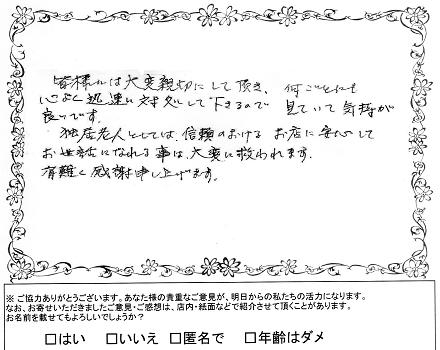 皆様には大変親切にして頂き、何ごとにも
心よく迅速に対処して下さるので見ていて気持が
良いです。
独居老人としては、信頼のおける お店に安心して
お世話になれる事は、大変に救われます。
有難く感謝申し上げます。
※ ご協力ありがとうございます。あなた様の貴重なご意見が、明日からの私たちの活力になります。
なお、お寄せいただきましたご意見・ご感想は、店内・紙面などで紹介させて頂くことがあります。
お名前を載せてもよろしいでしょうか?
□はい □いいえ □匿名で □年齢はダメ